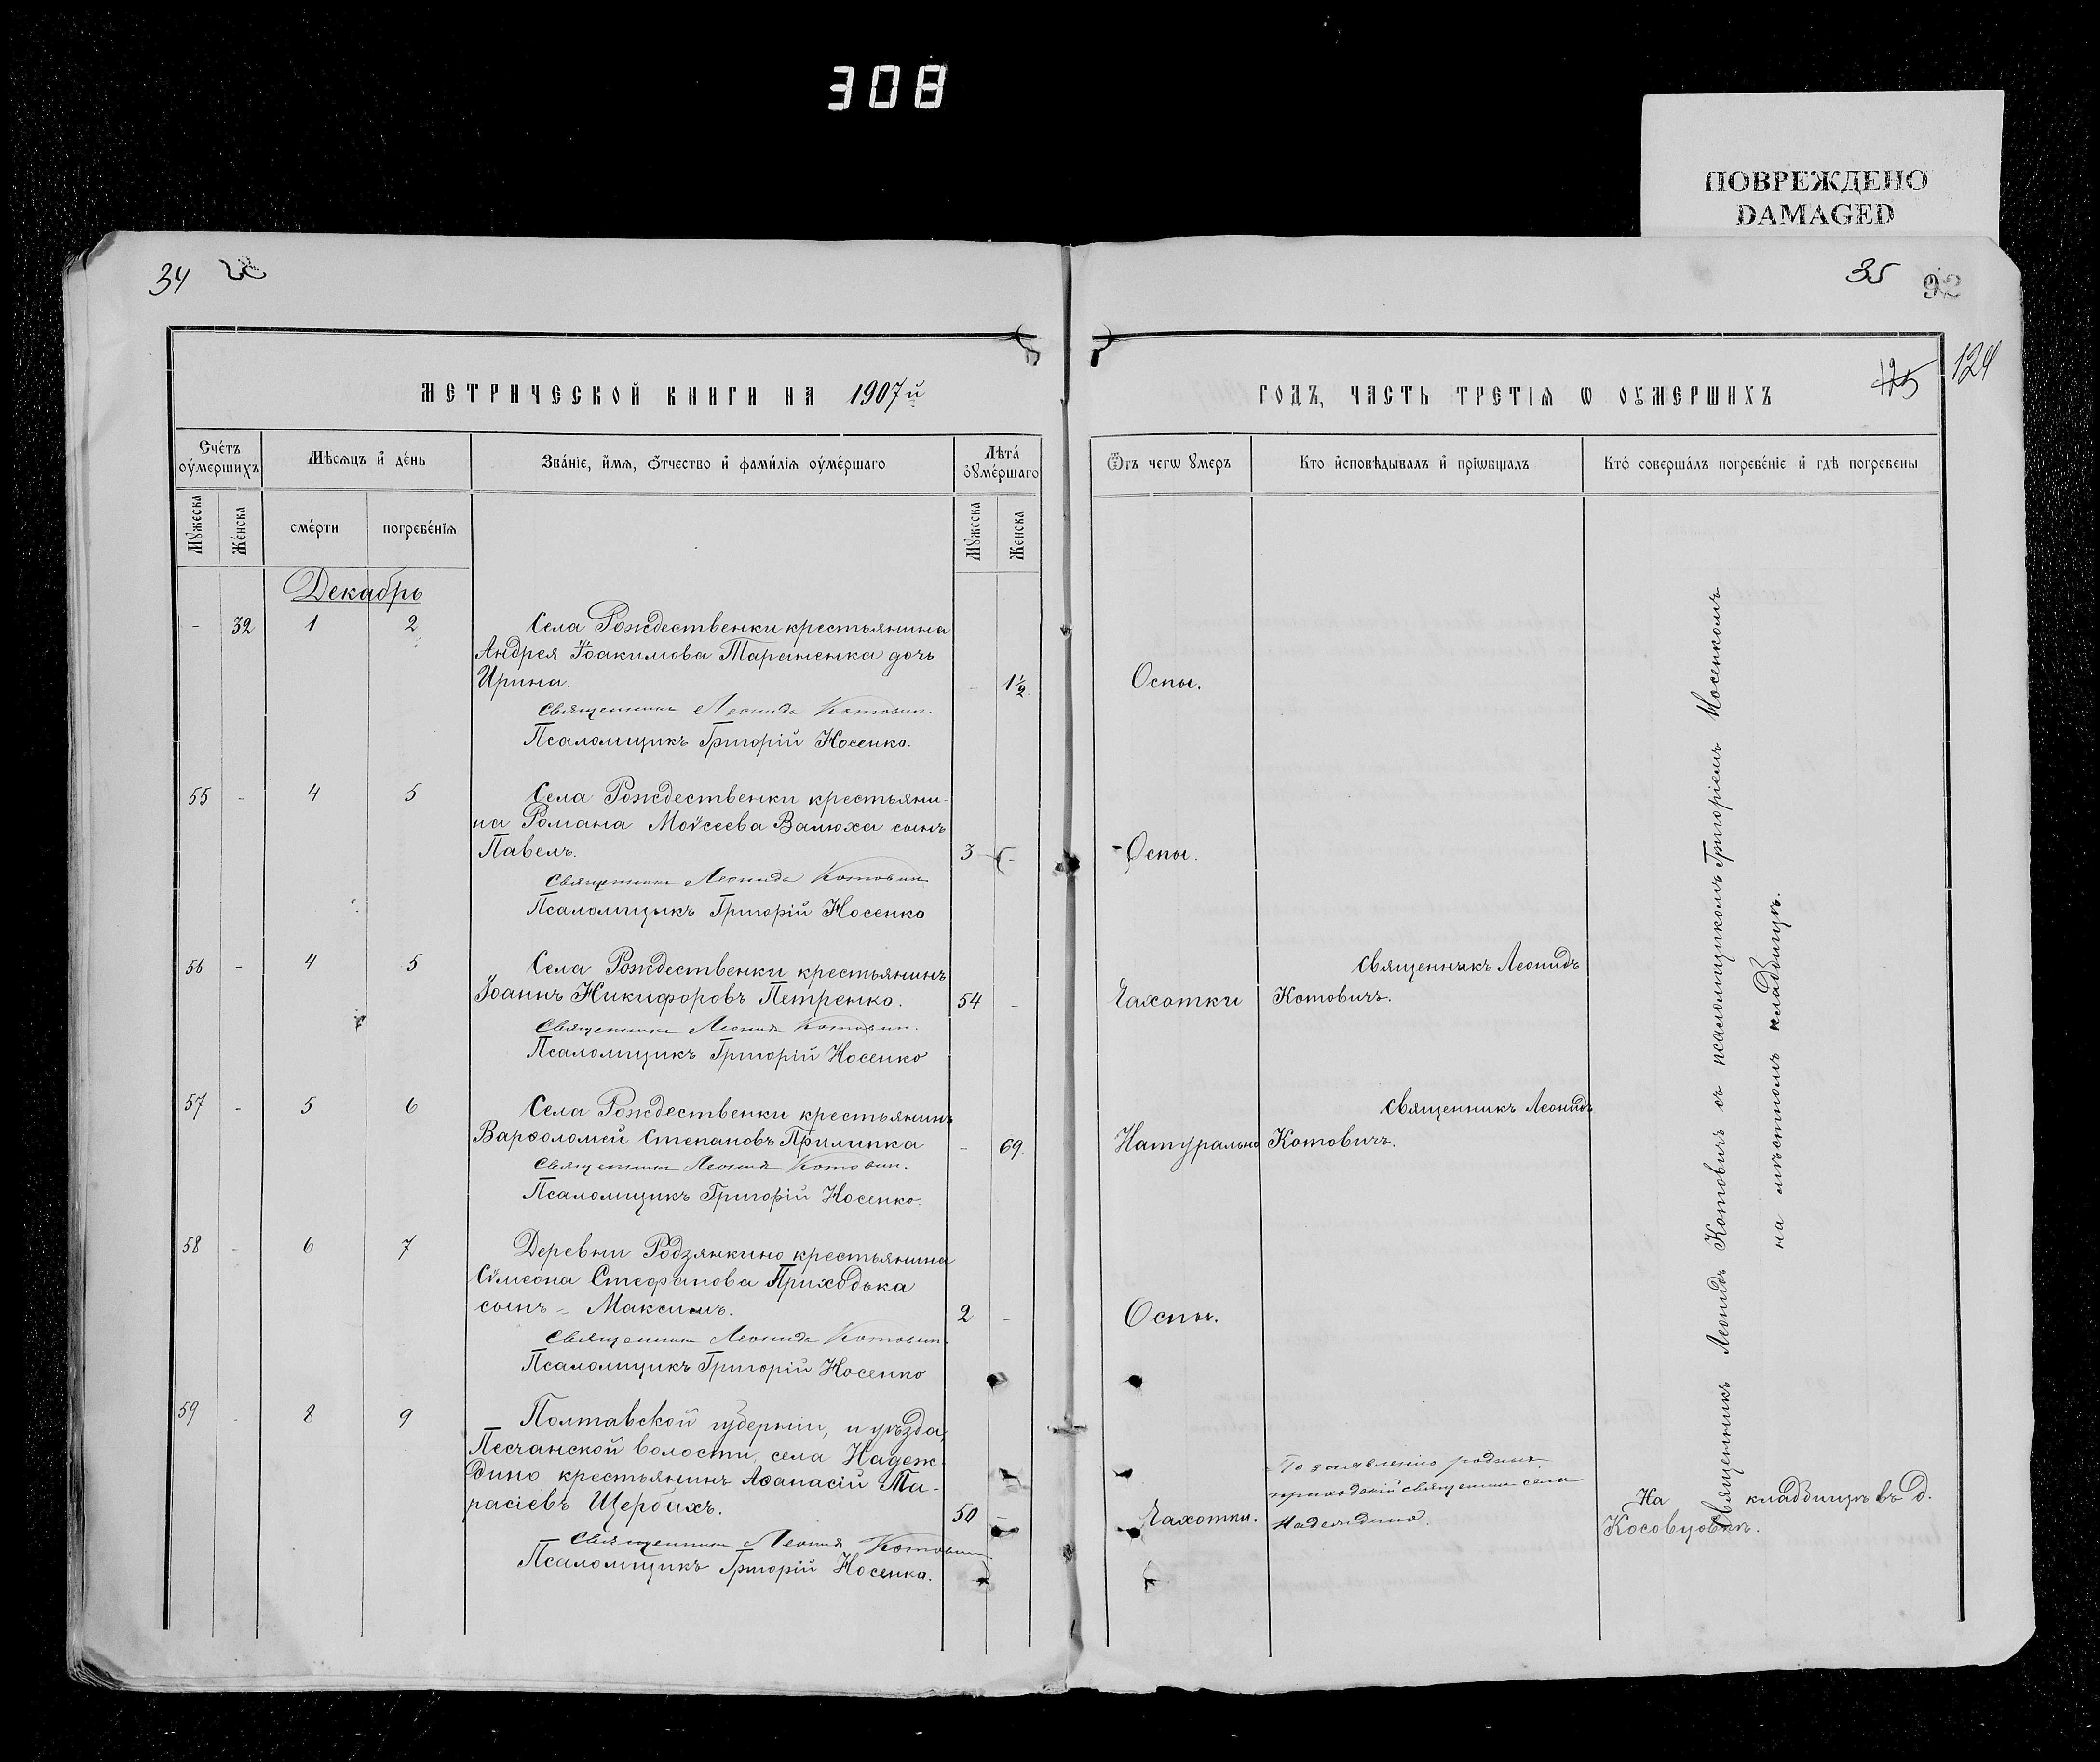 308
ПОВРЕЖДЕНО
DAMAGED
34
35 92
125 124
МЕТРИЧЕСКОЙ КНИГИ НА 1907й
ГОДЪ, ЧАСТЬ ТРЕТІѦ Ѡ ОУМЕРШИХЪ
Счетъ оумершихъ
Мѣсѧцъ и день
Званіе, имѧ, отчество и фамиліѧ оумершаго
Лѣта оумершаго
Ѿтъ чегѡ умеръ
Кто исповѣдывалъ и пріѡбщалъ
Кто совершалъ погребеніе и гдѣ погребены
Мужеска
Женска
смерти
погребеніѧ
Мужеска
Женска
Декабрь
- 32 1 2 Села Рождественки крестьянина
Андрея Іоакимова Тараненка дочь
Ирина. - 1½ Оспы.
Священникъ Леонидъ Котовичъ.
Псаломщикъ Григорій Носенко.
55 - 4 5 Села Рождественки крестьяни-
на Романа Моѵсеева Валюха сынъ
Павелъ. 3 - Оспы.
Священникъ Леонидъ Котовичъ
Псаломщикъ Григорій Носенко
56 - 4 5 Села Рождественки крестьянинъ Священникъ Леонидъ
Іоаннъ Никифоровъ Петренко. 54 - Чахотки Котовичъ.
Священникъ Леонидъ Котовичъ.
Псаломщикъ Григорій Носенко
57 - 5 6 Села Рождественки крестьянинъ Священникъ Леонидъ
Варѳоломей Степановъ Прилипка - 69 Натурально Котовичъ.
Священникъ Леонидъ Котовичъ.
Псаломщикъ Григорій Носенко.
58 - 6 7 Деревни Родзянкино крестьянина
Сѵмеона Стефанова Приходька
сынъ - Максимъ. 2 - Оспы.
Священникъ Леонидъ Котовичъ.
Псаломщикъ Григорій Носенко
59 - 8 9 Полтавской губерніи, и уѣзда,
Песчанской волости, села Надеж-
дино крестьянинъ Аѳанасій Та-
расіевъ Щербахъ. 50 - Чахотки.
По заявленію родныхъ
приходскій священникъ села
Надеждина.
На кладбищѣ въ д.
Косовцовкѣ.
Священникъ Леонидъ Котовичъ
Псаломщикъ Григорій Носенко.
Священникъ Леонидъ Котовичъ съ псаломщикомъ Григоріемъ Носенкомъ
на мѣстномъ кладбищѣ.